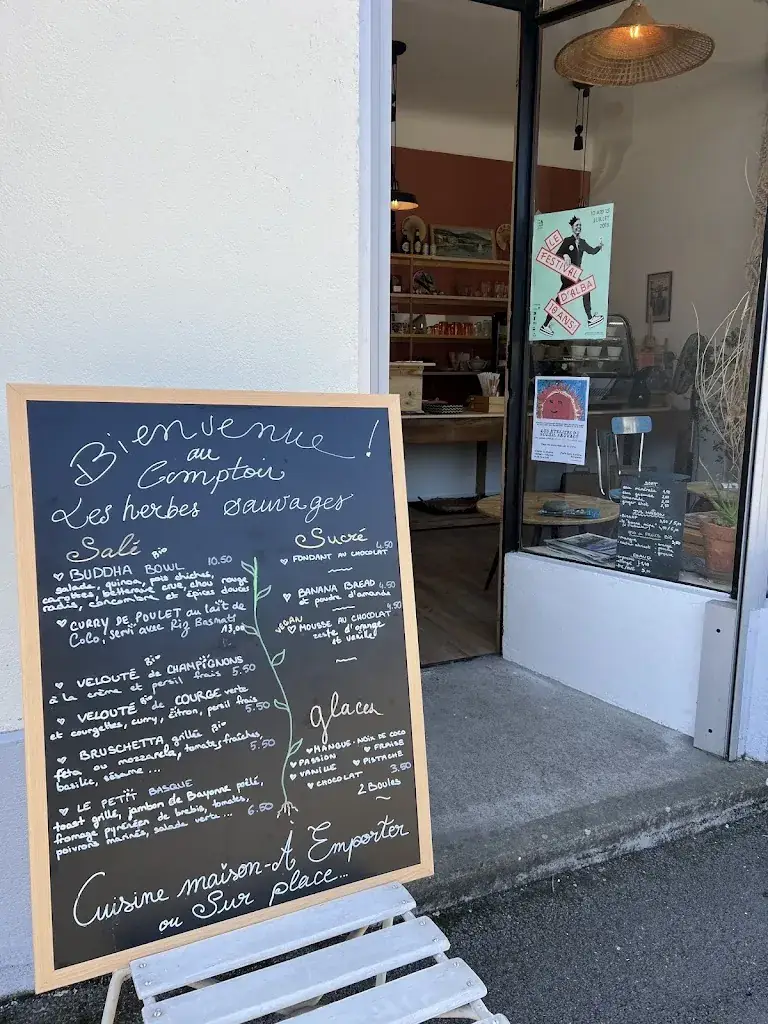 Bienvenue !
au
Comptoir
Les herbes sauvages
Salé
♥ BUDDHA BOWL Bio 10.50
salade, quinoa, pois chiches,
carottes, betterave crue, chou rouge
radis, concombre et épices douces
♥ CURRY DE POULET au lait de
Coco, servi avec Riz Basmati
13,00
♥ VELOUTÉ Bio de CHAMPIGNONS
à la crème et persil frais 5.50
♥ VELOUTÉ Bio de COURGE verte
et courgettes, curry, citron, persil frais
5.50
♥ BRUSCHETTA grillée Bio
féta ou mozzarela, tomates fraîches,
basilic, sésame ... 5.50
♥ LE PETIT BASQUE
toast grillé, jambon de Bayonne poêlé,
fromage pyrénéen de brebis, tomates,
poivrons marinés, salade verte ... 6.50
Sucré
♥ FONDANT AU CHOCOLAT 4.50
♥ BANANA BREAD 4.50
et poudre d'amande
VEGAN
♥ MOUSSE AU CHOCOLAT 4.50
zeste d'orange
et vanille
glaces
♥ MANGUE ♥ NOIX DE COCO
♥ PASSION ♥ FRAISE
♥ VANILLE ♥ PISTACHE
♥ CHOCOLAT 3.50
2 Boules
Cuisine maison - À Emporter
ou Sur place...
LE
FESTIVAL
D'ALBA
10 ANS!